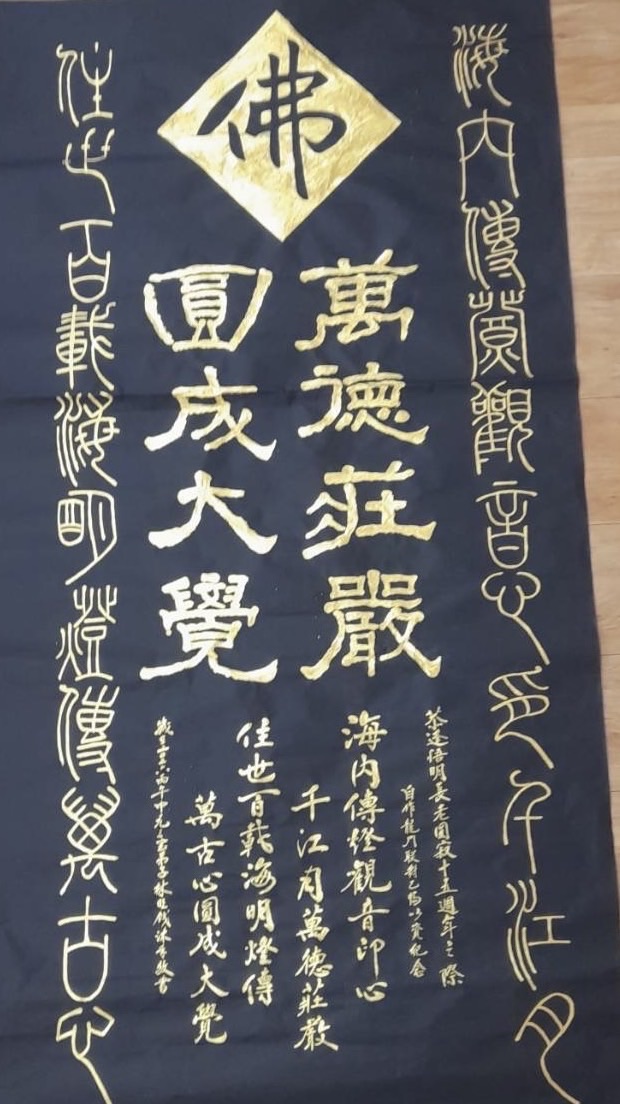 佛
海內傳燈觀音心印千江月
萬德莊嚴
圓成大覺
住世百載海明燈傳萬古心
恭逢悟明長老圓寂十五週年之際
自作龍門 以資紀念
海內傳燈觀音印心
千江月萬德莊嚴
住世百載海明燈傳
萬古心圓成大覺
歲 丙午中元 弟子林 沐手敬書